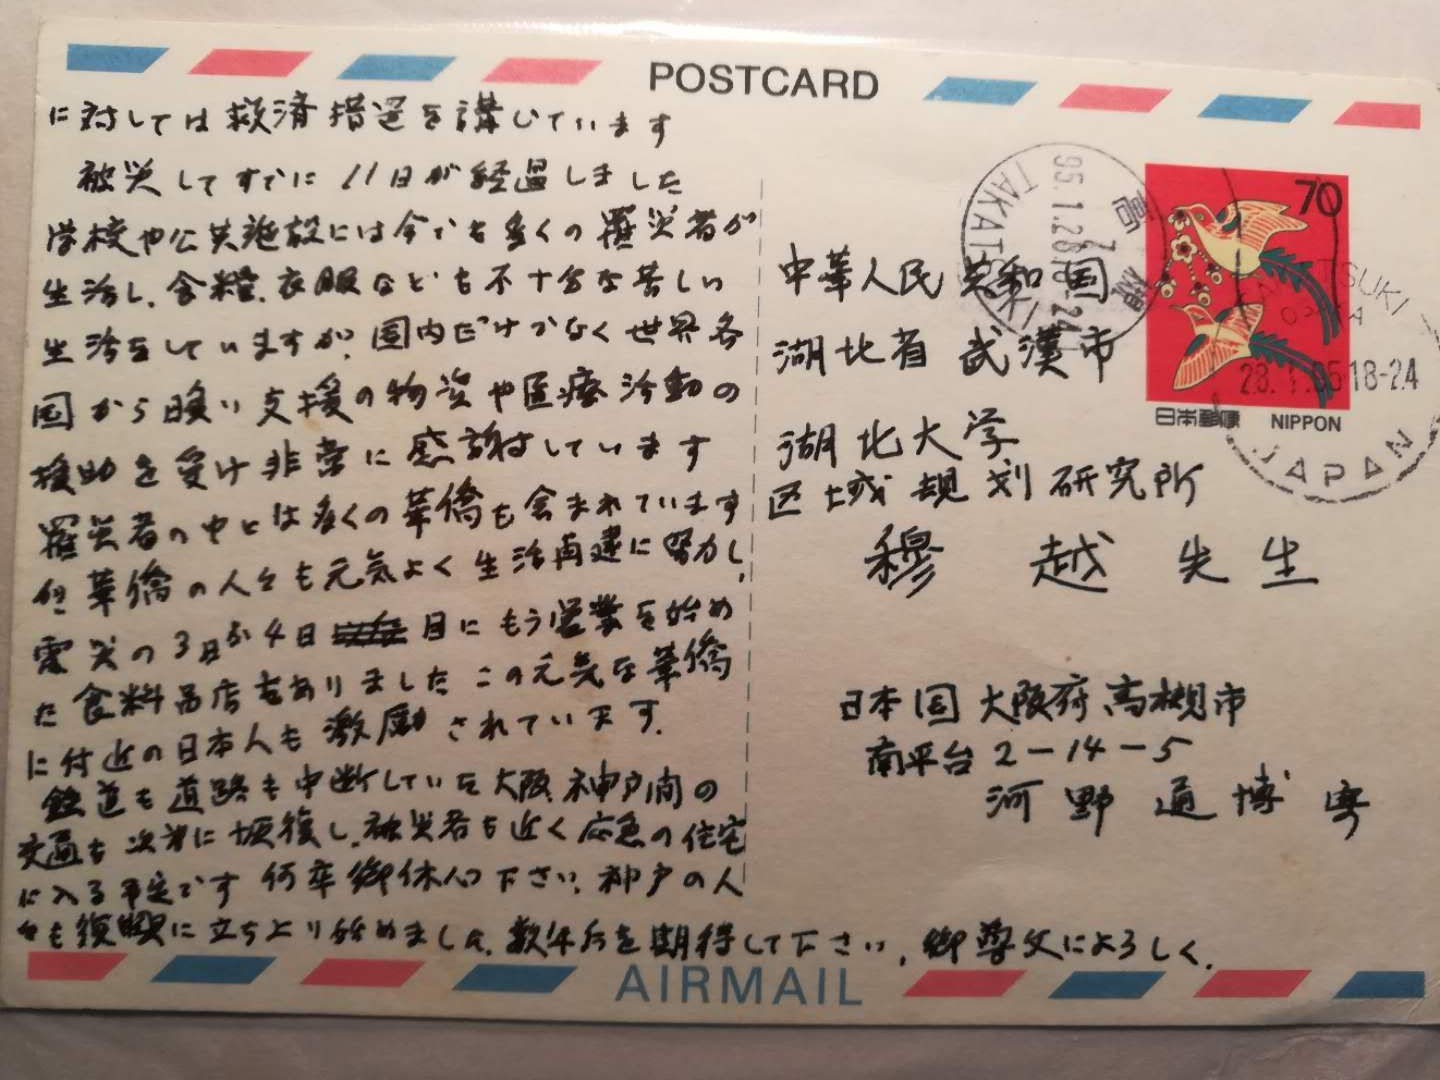 POSTCARD
に対しては救済措置を講じています
被災してすでに11日が経過しました
学校や公共施設には今でも多くの罹災者が
生活し、食糧、衣服なども不十分な苦しい
生活をしていますが、国内だけでなく世界各
国から暖い支援の物資や医療活動の
援助を受け非常に感謝しています
罹災者の中には多くの華僑も含まれています
華僑の人々も元気よく生活再建に努力し、
震災の3日か4日目にもう営業を始め
た食料品店もありましたこの元気な華僑
に付近の日本人も激励されています.
鉄道も道路も中断していた大阪神戸間の
交通も次第に恢復し、被災者も近く応急の住宅
に入る予定です 何卒御休心下さい、神戸の人
々も復興に立ち上り始めました、数年后を期待して下さい、御尊父によろしく.
95.1.28 18-24
高槻
TAKATSUKI
70
日本郵便 NIPPON
TAKATSUKI
OSAKA
28.1.95 18-24
JAPAN
中華人民共和国
湖北省 武漢市
湖北大学
区域規划研究所
穆 越 先生
日本国 大阪府、高槻市
南平台 2-14-5
河野 通博 寄
AIRMAIL